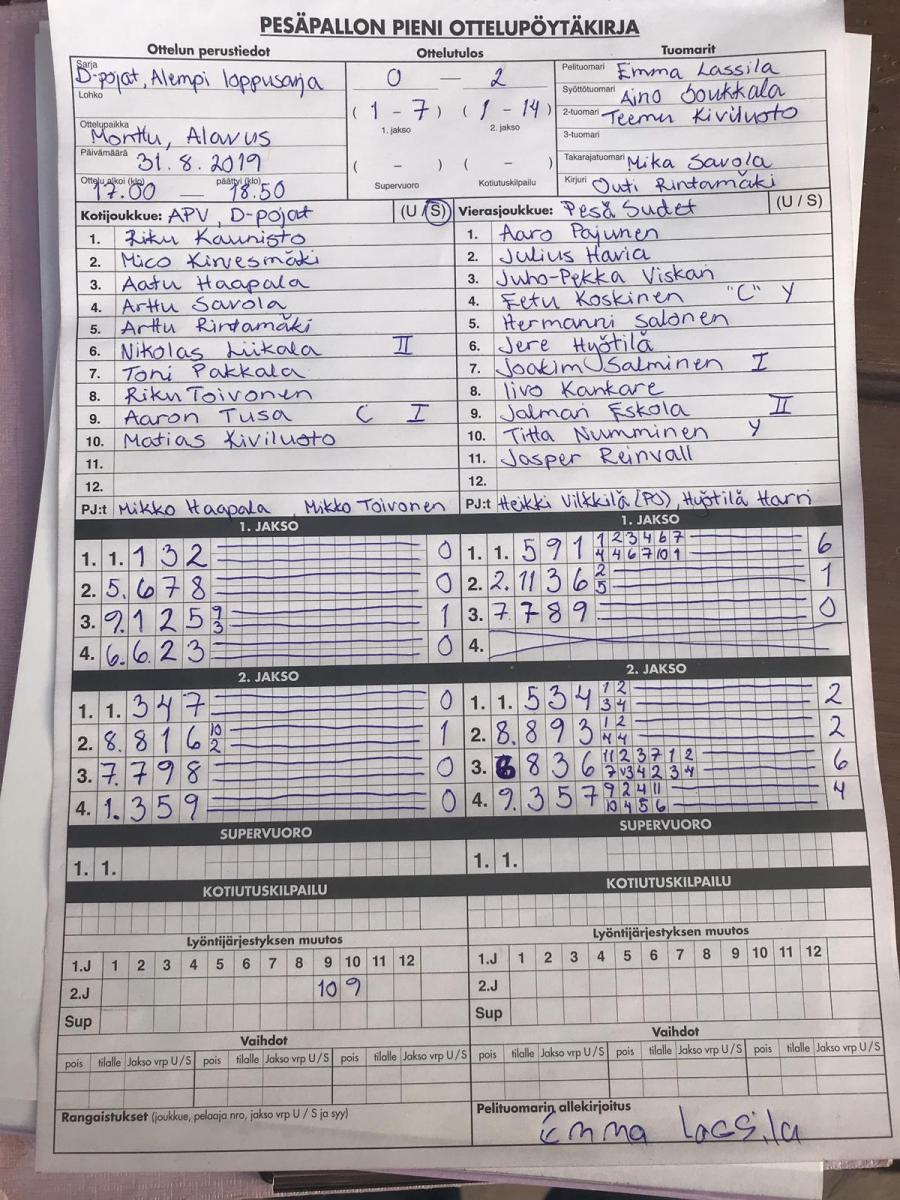 PESÄPALLON PIENI OTTELUPÖYTÄKIRJA
Ottelun perustiedot Ottelutulos Tuomarit
Sarja D-pojat, Alempi loppusarja
Lohko
Ottelupaikka Monttu, Alavus
Päivämäärä 31.8.2019
Ottelu alkoi (klo) 17.00 — päättyi (klo) 18.50
0 — 2
( 1 - 7 ) ( 1 - 14 )
1. jakso 2. jakso
( - ) ( - )
Supervuoro Kotiutuskilpailu
Pelituomari Emma Lassila
Syöttötuomari Aino Joukkala
2-tuomari Teemu Kiviluoto
3-tuomari
Takarajatuomari Mika Savola
Kirjuri Outi Rintamäki
Kotijoukkue: APV, D-pojat (U/S)
1. Riku Kaunisto
2. Mico Kirvesmäki
3. Aatu Haapala
4. Arttu Savola
5. Arttu Rintamäki
6. Nikolas Liikala II
7. Toni Pakkala
8. Riku Toivonen
9. Aaron Tusa C I
10. Matias Kiviluoto
11.
12.
PJ:t Mikko Haapala, Mikko Toivonen
Vierasjoukkue: Pesä Sudet (U / S)
1. Aaro Pajunen
2. Julius Havia
3. Juho-Pekka Viskari
4. Eetu Koskinen "C" Y
5. Hermanni Salonen
6. Jere Hyötilä
7. Joakim Salminen I
8. Iivo Kankare
9. Jalmari Eskola II
10. Titta Numminen Y
11. Jasper Reinvall
12.
PJ:t Heikki Vilkkilä (PJ), Hyötilä Harri
1. JAKSO
1. 1. 1 3 2 0
2. 5. 6 7 8 0
3. 9. 1 2 5 1
4. 6. 6 2 3 0
1. JAKSO
1. 1. 5 9 1 1 2 3 4 6 7 6
4 4 6 7 10 1
2. 2. 11 3 6 2 1
5
3. 7 7 8 9 0
4.
2. JAKSO
1. 1. 3 4 7 0
2. 8. 8 1 6 10 1
2
3. 7. 7 9 8 0
4. 1. 3 5 9 0
2. JAKSO
1. 1. 5 3 4 1 2 2
3 4
2. 8. 8 9 3 1 2 2
4 4
3. 6 8 3 6 11 2 3 7 1 2 6
7 3 4 2 3 4
4. 9. 3 5 7 9 2 4 11 4
10 4 5 6
SUPERVUORO
1. 1.
SUPERVUORO
1. 1.
KOTIUTUSKILPAILU
KOTIUTUSKILPAILU
Lyöntijärjestyksen muutos
1.J 1 2 3 4 5 6 7 8 9 10 11 12
2.J 10 9
Sup
Lyöntijärjestyksen muutos
1.J 1 2 3 4 5 6 7 8 9 10 11 12
2.J
Sup
Vaihdot
pois tilalle Jakso vrp U/S pois tilalle Jakso vrp U/S pois tilalle Jakso vrp U/S
Vaihdot
pois tilalle Jakso vrp U/S pois tilalle Jakso vrp U/S pois tilalle Jakso vrp U/S
Rangaistukset (joukkue, pelaaja nro, jakso vrp U / S ja syy)
Pelituomarin allekirjoitus
Emma Lassila